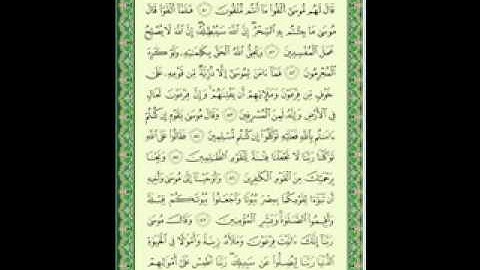 قَالَ لَهُم مُّوسَىٰٓ أَلْقُوا۟ مَآ أَنتُم مُّلْقُونَ ٨٠ فَلَمَّآ أَلْقَوْا۟ قَالَ
مُوسَىٰ مَا جِئْتُم بِهِ ٱلسِّحْرُ إِنَّ ٱللَّهَ سَيُبْطِلُهُۥٓ إِنَّ ٱللَّهَ لَا يُصْلِحُ
عَمَلَ ٱلْمُفْسِدِينَ ٨١ وَيُحِقُّ ٱللَّهُ ٱلْحَقَّ بِكَلِمَـٰتِهِۦ وَلَوْ كَرِهَ
ٱلْمُجْرِمُونَ ٨٢ فَمَآ ءَامَنَ لِمُوسَىٰٓ إِلَّا ذُرِّيَّةٌ مِّن قَوْمِهِۦ عَلَىٰ
خَوْفٍ مِّن فِرْعَوْنَ وَمَلَإِي۟هِمْ أَن يَفْتِنَهُمْ وَإِنَّ فِرْعَوْنَ لَعَالٍ
فِى ٱلْأَرْضِ وَإِنَّهُۥ لَمِنَ ٱلْمُسْرِفِينَ ٨٣ وَقَالَ مُوسَىٰ يَـٰقَوْمِ إِن كُنتُمْ
ءَامَنتُم بِٱللَّهِ فَعَلَيْهِ تَوَكَّلُوٓا۟ إِن كُنتُم مُّسْلِمِينَ ٨٤ فَقَالُوا۟ عَلَى ٱللَّهِ
تَوَكَّلْنَا رَبَّنَا لَا تَجْعَلْنَا فِتْنَةً لِّلْقَوْمِ ٱلظَّـٰلِمِينَ ٨٥ وَنَجِّنَا
بِرَحْمَتِكَ مِنَ ٱلْقَوْمِ ٱلْكَـٰفِرِينَ ٨٦ وَأَوْحَيْنَآ إِلَىٰ مُوسَىٰ وَأَخِيهِ
أَن تَبَوَّءَا لِقَوْمِكُمَا بِمِصْرَ بُيُوتًا وَٱجْعَلُوا۟ بُيُوتَكُمْ قِبْلَةً
وَأَقِيمُوا۟ ٱلصَّلَوٰةَ وَبَشِّرِ ٱلْمُؤْمِنِينَ ٨٧ وَقَالَ مُوسَىٰ
رَبَّنَآ إِنَّكَ ءَاتَيْتَ فِرْعَوْنَ وَمَلَأَهُۥ زِينَةً وَأَمْوَٰلًا فِى ٱلْحَيَوٰةِ
ٱلدُّنْيَا رَبَّنَا لِيُضِلُّوا۟ عَن سَبِيلِكَ رَبَّنَا ٱطْمِسْ عَلَىٰٓ أَمْوَٰلِهِمْ